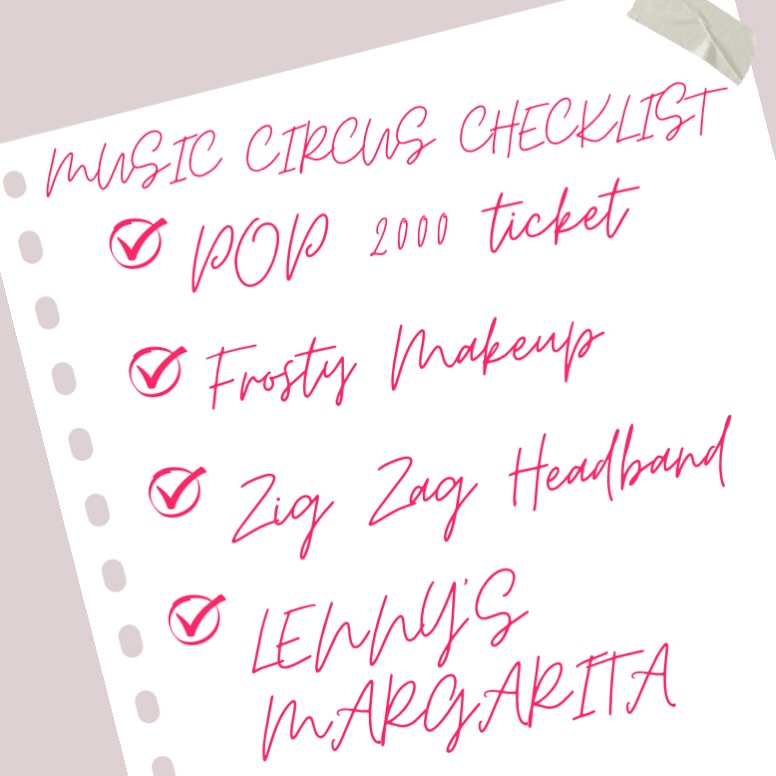 MUSIC CIRCUS CHECKLIST
POP 2000 ticket
Frosty Makeup
Zig Zag Headband
LENNY'S
MARGARITA